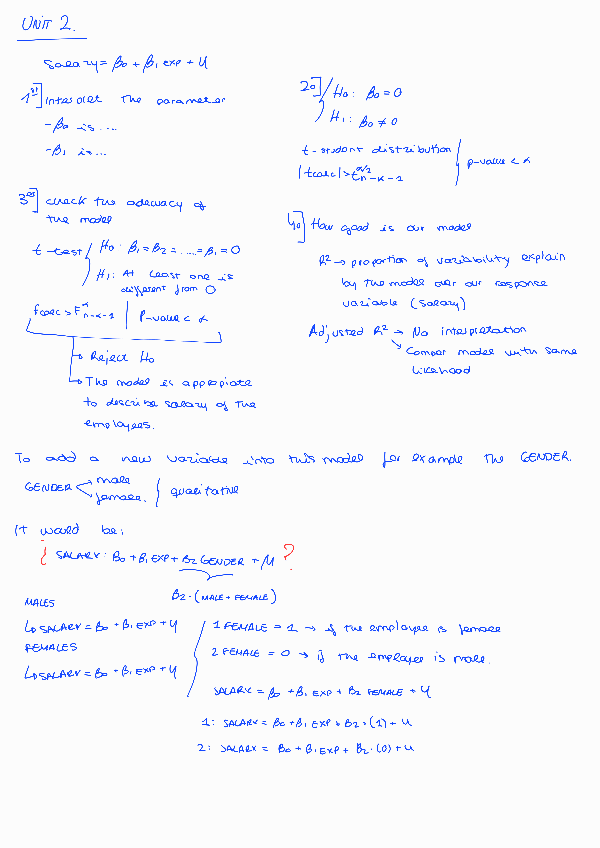 UNIT 2.
Salary = β0 + β1 EXP + U
1st] Interpret the parameter
- β0 is ....
- β1 is...
2o] H0: β0 = 0
H1: β0 ≠ 0
t-student distribution
|tcalc| > t α/2 n-k-1 | p-value < α
3rd] Check the adequacy of
the model
t-test H0: β1 = β2 = ..... = β1 = 0
H1: At least one is
different from 0
fcalc > F α n-k-1 | P-value < α
↳ Reject H0
↳ The model is appropiate
to describe salary of the
employees.
4o] How good is our model
R² → proportion of variability explain
by the model over our response
variable (salary)
Adjusted R² → No interpretation
↘ Compar model with same
likelihood
To add a new variable into this model for example the GENDER.
GENDER male
female. } qualitative
It would be:
¿ SALARY: β0 + β1 EXP + β2 GENDER + U ?
β2 · (MALE + FEMALE)
MALES
↳ SALARY = β0 + β1 EXP + U
FEMALES
↳ SALARY = β0 + β1 EXP + U
1 FEMALE = 1 → if the employee is female
2 FEMALE = 0 → if the employee is male.
SALARY = β0 + β1 EXP + β2 FEMALE + U
1: SALARY = β0 + β1 EXP + β2 · (1) + U
2: SALARY = β0 + β1 EXP + β2 · (0) + U